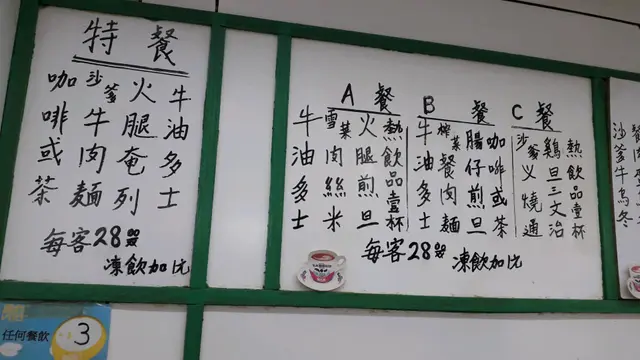 特餐
牛油多士
火腿奄列
沙爹牛肉麵
咖啡或茶
每客28.00
凍飲加比
A 餐
牛油多士
雪菜肉絲米
火腿煎旦
熱飲品壹杯
B 餐
牛油多士
榨菜餐肉麵
腸仔煎旦
咖啡或茶
C 餐
沙爹义燒通
雞旦三文治
熱飲品壹杯
每客28.00
凍飲加比
沙爹牛烏冬
任何餐飲
3